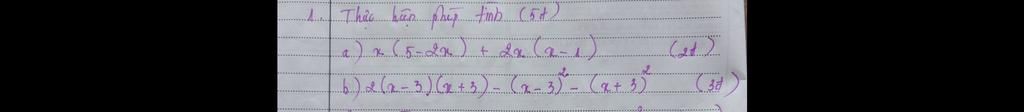 1. Thức hiện phép tính (5đ)
a) x(5-2x) + 2x(x-1) (2đ)
b) 2(x-3)(x+3) - (x-3)² - (x+3)² (3đ)